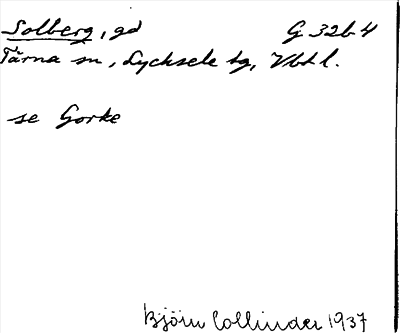 Solberg, gd G 32b4
Tärna sn, Lycksele tg, Vbtl.
se Gorke
Björn Collinder 1937